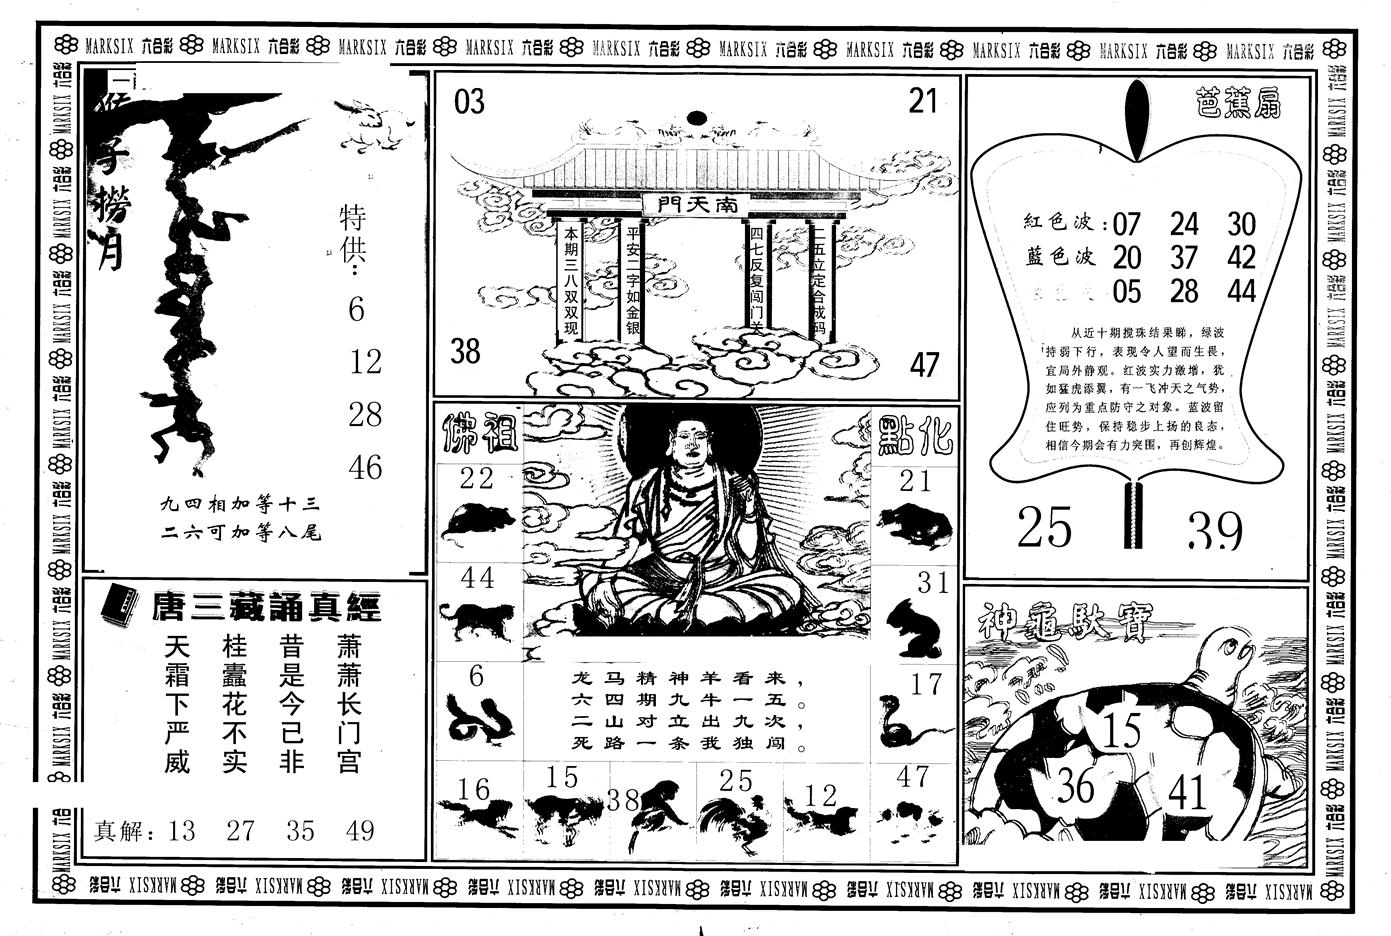 MARKSIX 六合彩 MARKSIX 六合彩 MARKSIX 六合彩 MARKSIX 六合彩 MARKSIX 六合彩 MARKSIX 六合彩 MARKSIX 六合彩 MARKSIX 六合彩 MARKSIX 六合彩 MARKSIX 六合彩
猴子撈月
特供：
6
12
28
46
九四相加等十三
二六可加等八尾
唐三藏誦真經
萧萧长门宫
昔是今已非
桂蠹花不实
天霜下严威
真解：13 27 35 49
03 21
門天南
本期三八双双现
平安二字如金银
四七反复闯门关
二五立定合成码
38 47
佛祖 點化
22 21
44 31
6 17
龙马精神羊看来，
六四期九牛一五。
二山对立出九次，
死路一条我独闯。
16 15 38 25 12 47
芭蕉扇
紅色波：07 24 30
藍色波 20 37 42
05 28 44
从近十期搅珠结果睇，绿波
持弱下行，表现令人望而生畏，
宜局外静观。红波实力激增，犹
如猛虎添翼，有一飞冲天之气势，
应列为重点防守之对象。蓝波留
住旺势，保持稳步上扬的良态，
相信今期会有力突围，再创辉煌。
25 39
神龜馱寶
15
36 41
MARKSIX 六合彩 MARKSIX 六合彩 MARKSIX 六合彩 MARKSIX 六合彩 MARKSIX 六合彩 MARKSIX 六合彩 MARKSIX 六合彩 MARKSIX 六合彩 MARKSIX 六合彩 MARKSIX 六合彩